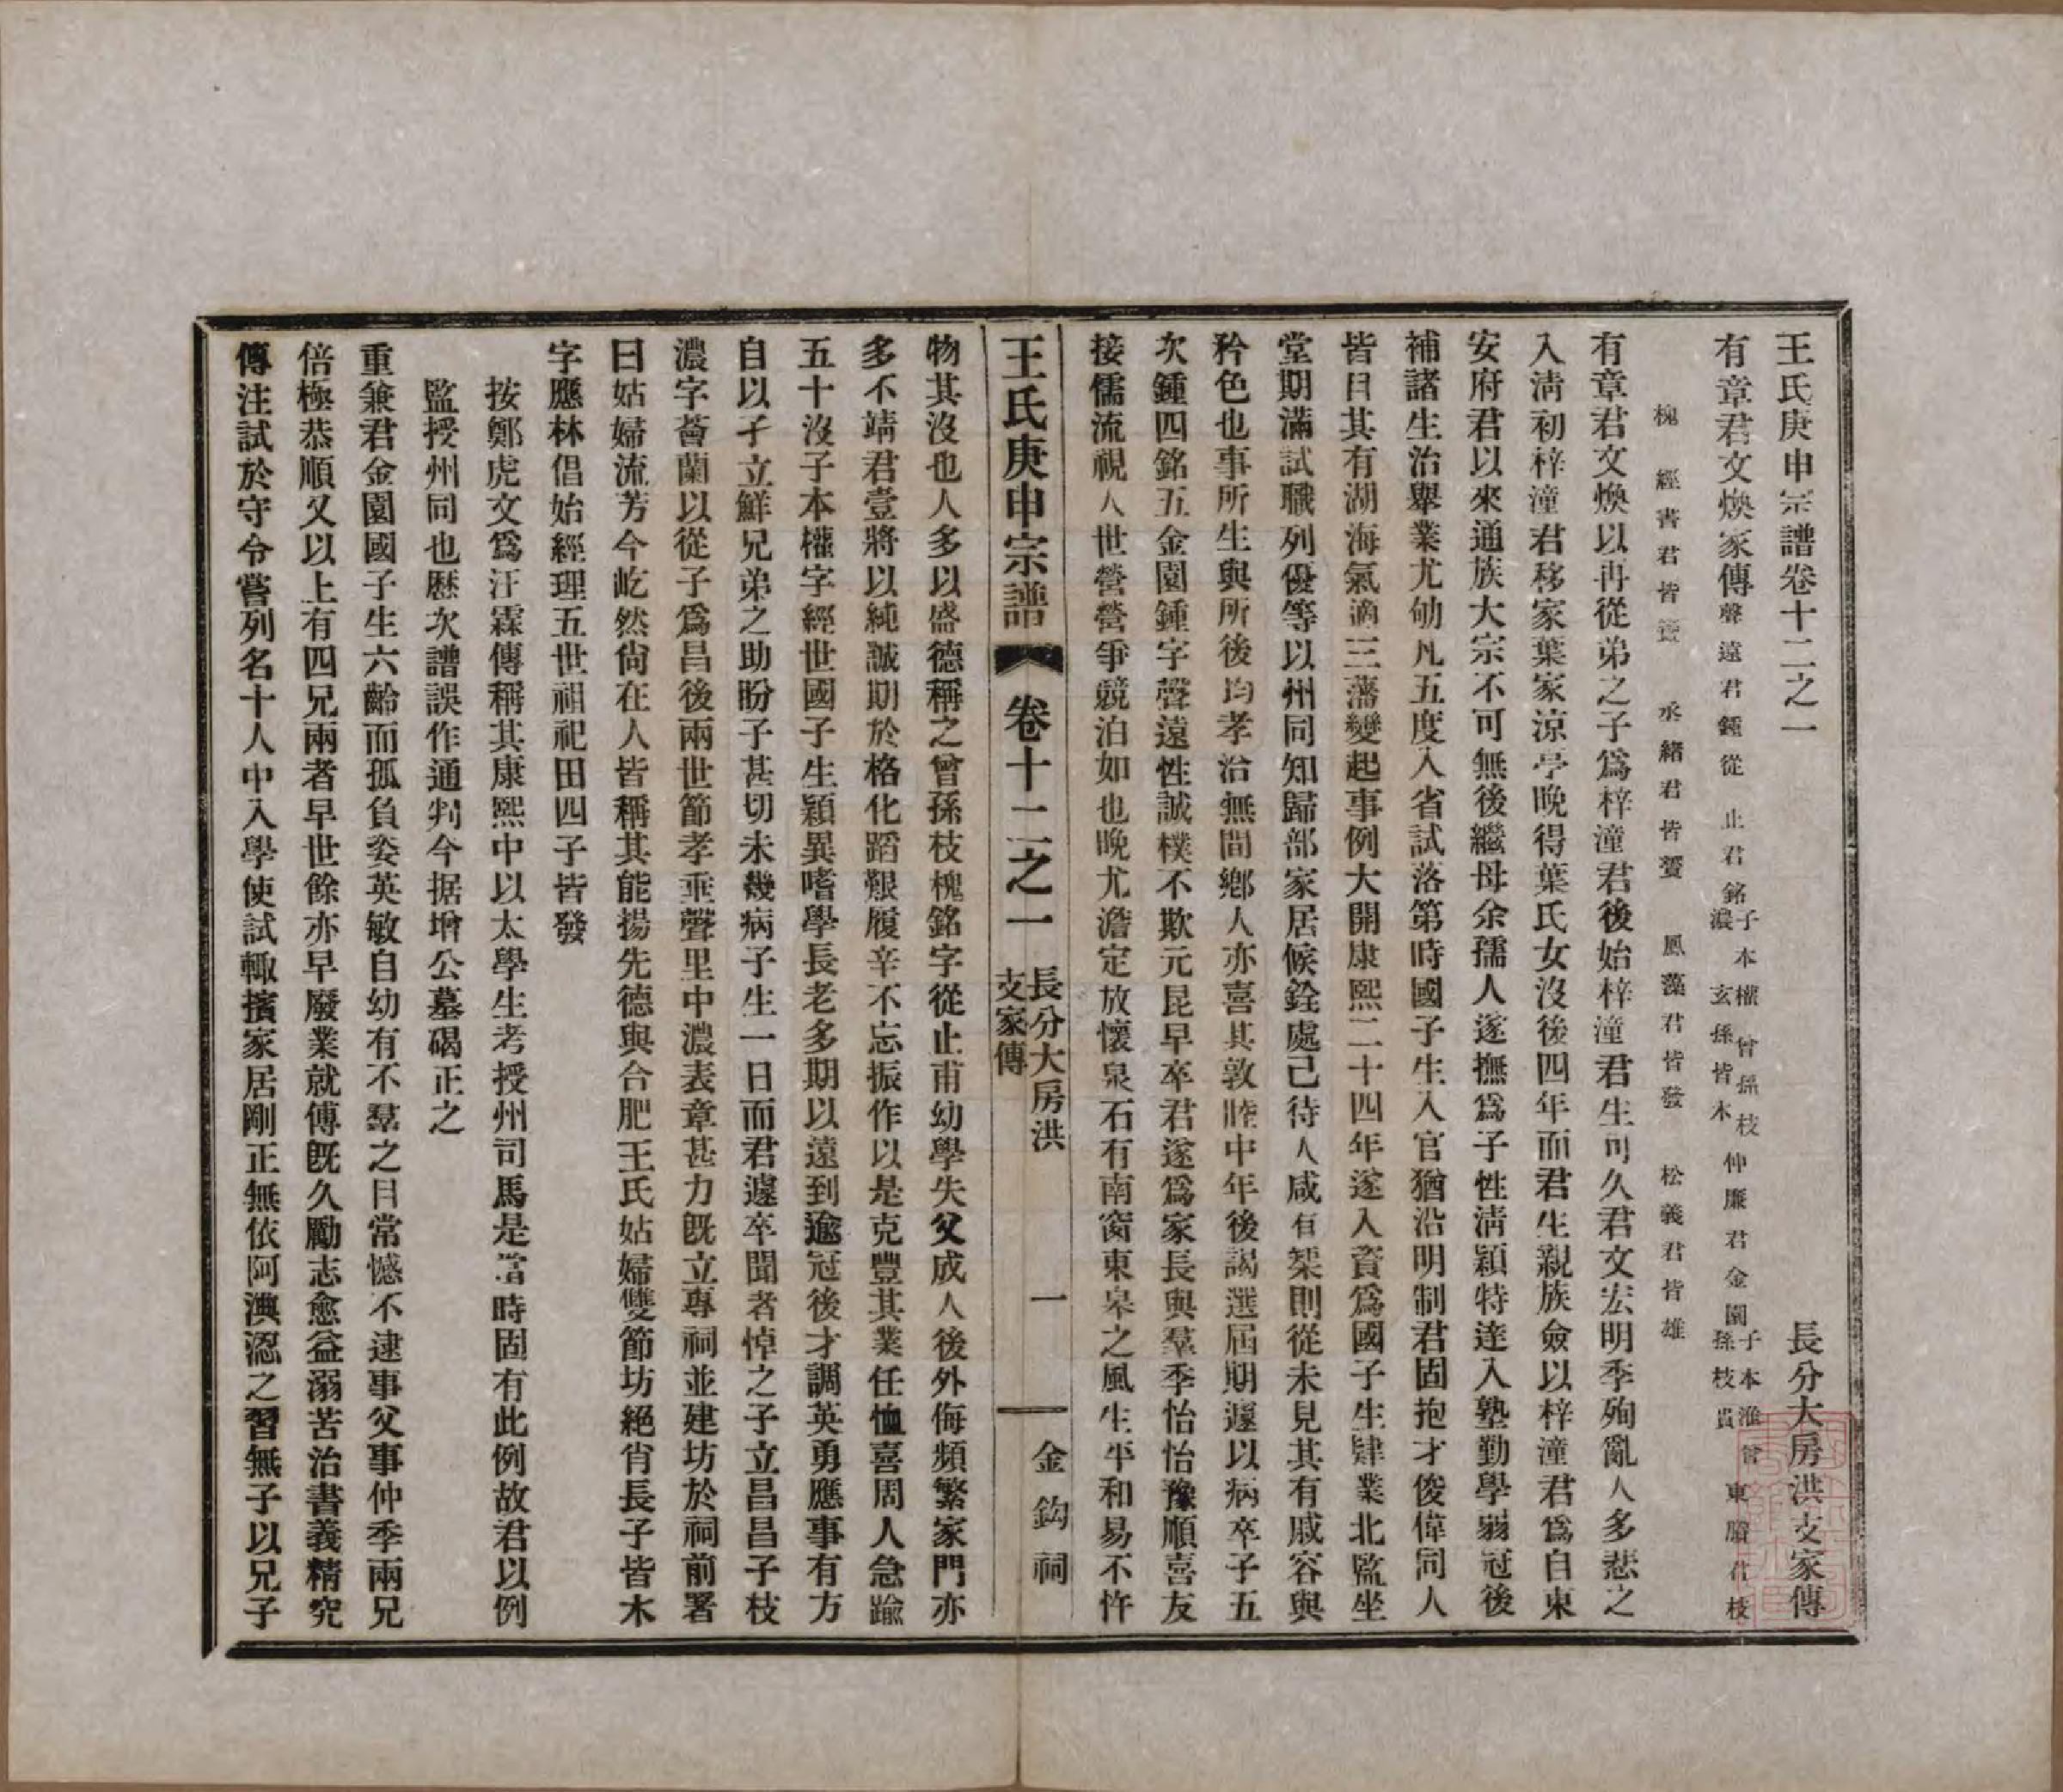 王氏庚申宗譜卷十二之一　長分大房洪支家傳
有章君文煥家傳聲遠君鍾從　止君銘子本權　曾孫枝濃　玄孫皆木仲廉君金園子本淮　曾孫枝貴　東牕君枝
槐　經書君皆　丞緒君皆賚　鳳藻君皆發　松義君皆雄
有章君文煥以再從弟之子爲梓潼君後始梓潼君生可久君文宏明季殉亂人多悲之
入淸初梓潼君移家葉家涼亭晩得葉氏女沒後四年而君生親族僉以梓潼君爲自東
安府君以來通族大宗不可無後繼母余孺人遂撫爲子性淸穎特達入塾勤學弱冠後
補諸生治舉業尤劬凡五度入省試落第時國子生入官猶沿明制君固抱才俊偉同人
皆目其有湖海氣適三藩變起事例大開康熙二十四年遂入資爲國子生肄業北監坐
堂期滿試職列優等以州同知歸部家居候銓處己待人咸有榘則從未見其有戚容與
矜色也事所生與所後均孝治無間鄉人亦喜其敦睦中年後謁選屆期遽以病卒子五
次鍾四銘五金園鍾字聲遠性誠樸不欺元昆早卒君遂爲家長與羣季怡怡豫順喜友
接儒流視人世營營爭競泊如也晩尤澹定放懷泉石有南窗東皋之風生平和易不忤
王氏庚申宗譜　卷十二之一　長分大房洪支家傳　一　金鈎祠
物其沒也人多以盛德稱之曾孫枝槐銘字從止甫幼學失父成人後外侮頻繁家門亦
多不靖君壹將以純誠期於格化蹈艱履辛不忘振作以是克豐其業任恤喜周人急踰
五十沒子本權字經世國子生穎異嗜學長老多期以遠到逾冠後才調英勇應事有方
自以孑立鮮兄弟之助盼子甚切未幾病子生一日而君遽卒聞者悼之子立昌昌子枝
濃字薈蘭以從子爲昌後兩世節孝垂聲里中濃表章甚力旣立專祠並建坊於祠前署
曰姑婦流芳今屹然尙在人皆稱其能揚先德與合肥王氏姑婦雙節坊絕肖長子皆木
字應林倡始經理五世祖祀田四子皆發
按鄭虎文爲汪霖傳稱其康熙中以太學生考授州司馬是當時固有此例故君以例
監授州同也歷次譜誤作通判今据增公墓碣正之
重兼君金園國子生六齡而孤負姿英敏自幼有不羣之目常憾不逮事父事仲季兩兄
倍極恭順又以上有四兄兩者早世餘亦早廢業就傅旣久勵志愈益溺苦治書義精究
傳注試於守令嘗列名十人中入學使試輒擯家居剛正無依阿淟涊之習無子以兄子